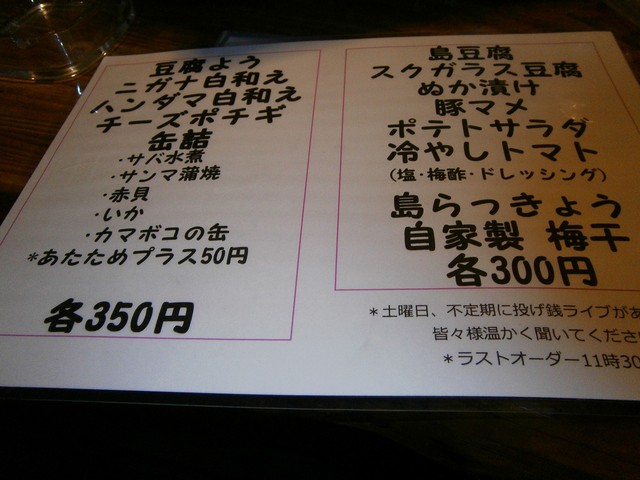 豆腐よう
ニガナ白和え
ハンダマ白和え
チーズポチギ
缶詰
・サバ水煮
・サンマ蒲焼
・赤貝
・いか
・カマボコの缶
*あたためプラス50円
各350円
島豆腐
スクガラス豆腐
ぬか漬け
豚マメ
ポテトサラダ
冷やしトマト
(塩・梅酢・ドレッシング)
島らっきょう
自家製 梅干
各300円
*土曜日、不定期に投げ銭ライブがあ
皆々様温かく聞いてくださ
*ラストオーダー11時30